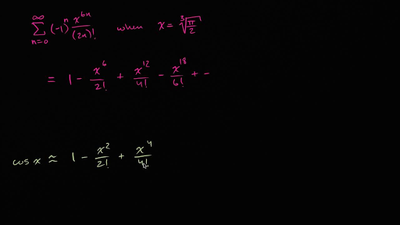 ∞∑n=0 (-1)ⁿ x⁶ⁿ/(2n)! when x = ∛(π/2)
= 1 - x⁶/2! + x¹²/4! - x¹⁸/6! + -
cos x ≈ 1 - x²/2! + x⁴/4!